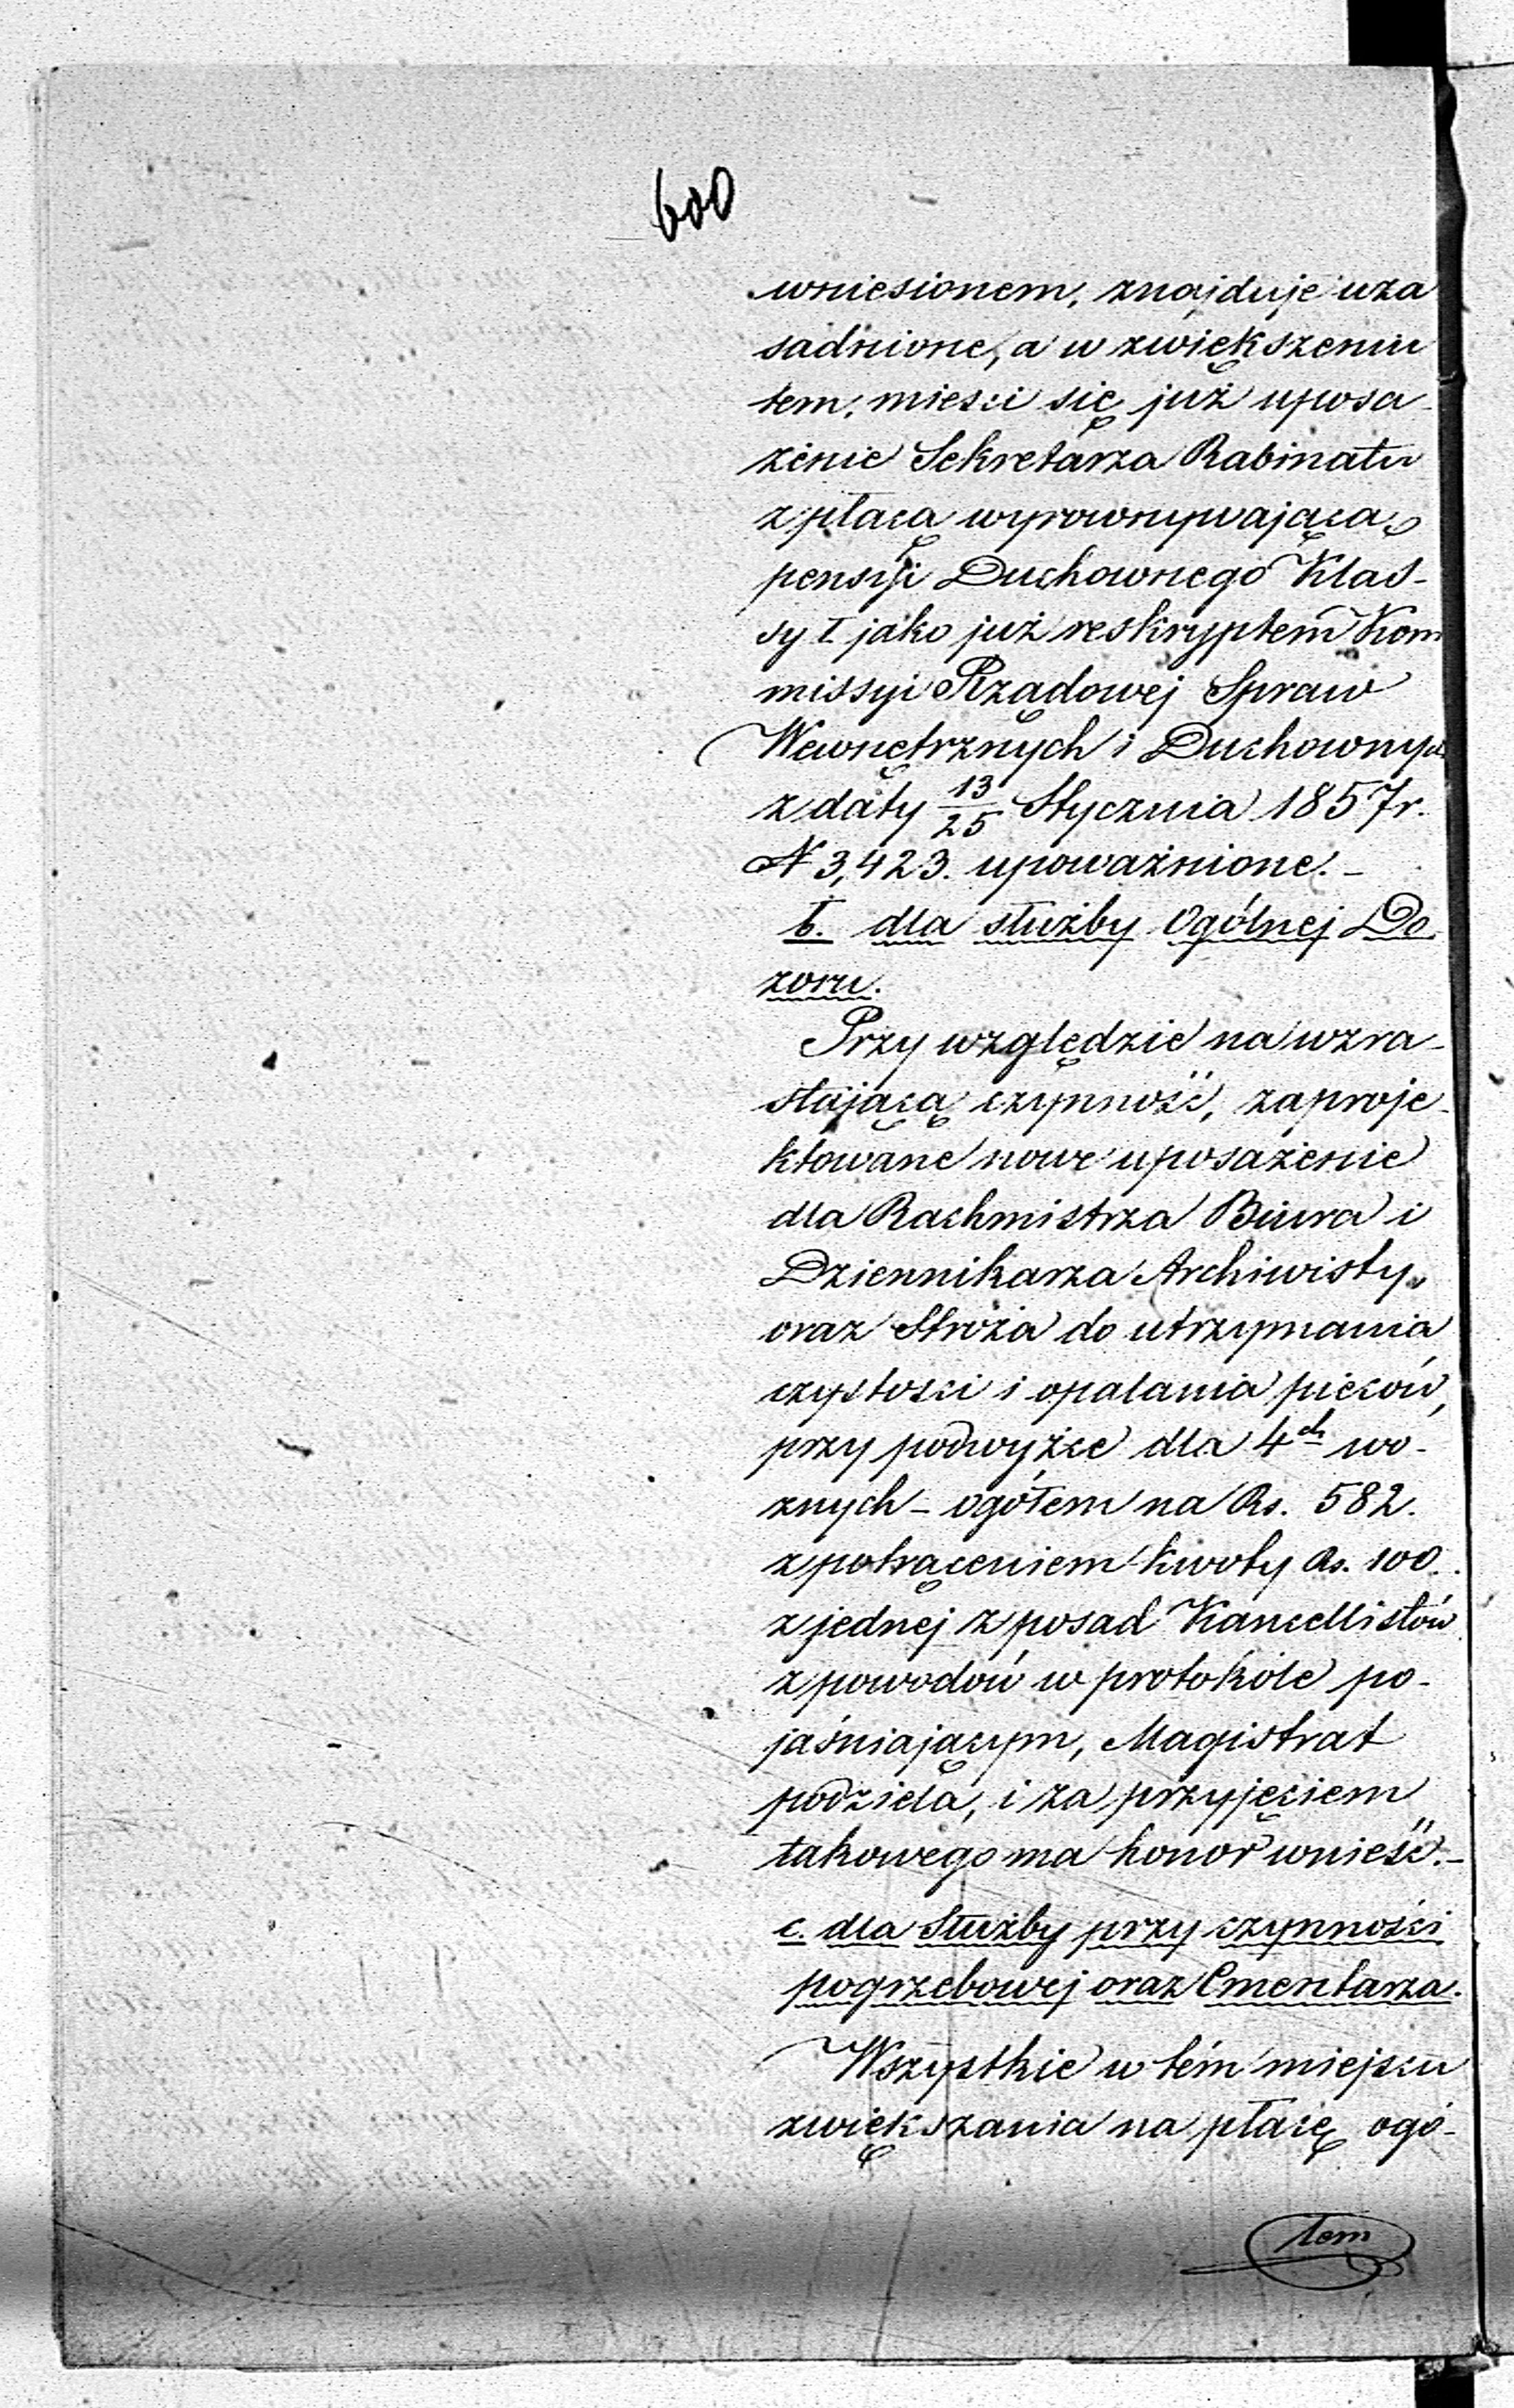 600
wniesionem, znajduje uza
sadnione, a w zwiększeniu
tem, mieści się już uposa-
żenie Sekretarza Rabinatu
z płacą wyrownywającą
pensyi Duchownego Klas-
sy I jako już reskryptem Kom
missyi Rządowej Spraw
Wewnętrznych i Duchownych
z daty 13/25 Stycznia 1857 r.
N 3,423. upoważnione. -
b. dla służby Ogólnej Do
zoru.
Przy względzie na wzra-
stającą czynność, zaproje-
ktowane nowe uposażenie
dla Rachmistrza Biura i
Dziennikarza Archiwisty,
oraz Stróża do utrzymania
czystości i opalania pieców,
przy podwyżce dla 4ch wo-
znych - ogółem na Rs. 582.
z potrąceniem kwoty Rs. 100.
z jednej z posad Kancellistów
z powodów w protokóle po-
jaśniającym, Magistrat
podziela, i za przyjęciem
takowego ma honor wnieść. -
c. dla Służby przy czynności
pogrzebowej oraz Cmentarza.
Wszystkie w tém miejscu
zwiększania na płacę ogó-
łem